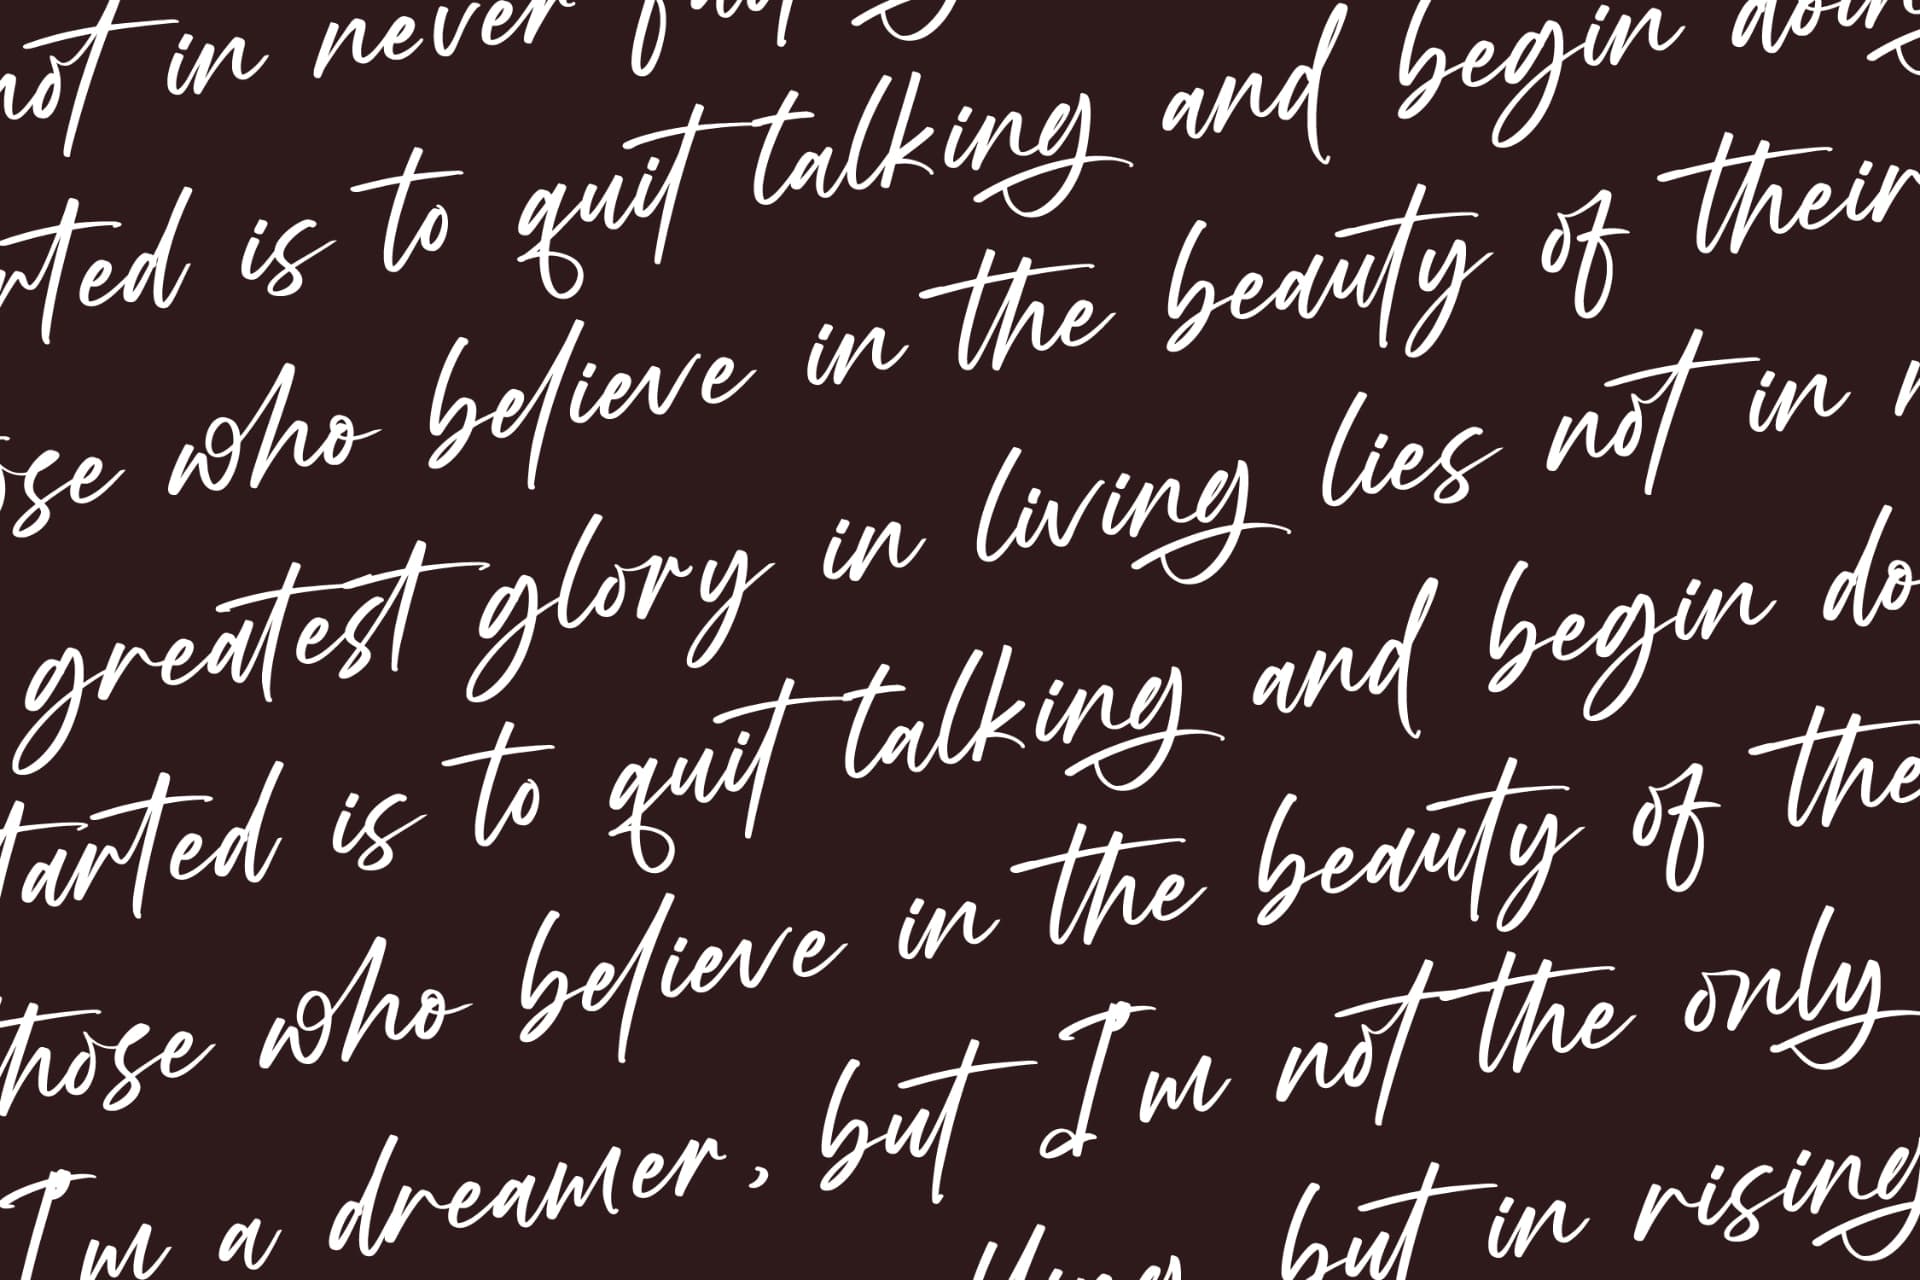 not in never
rted is to quit talking and begin doing
se who believe in the beauty of their
greatest glory in living lies not in
tarted is to quit talking and begin do
those who believe in the beauty of the
I'm a dreamer, but I'm not the only
but in rising